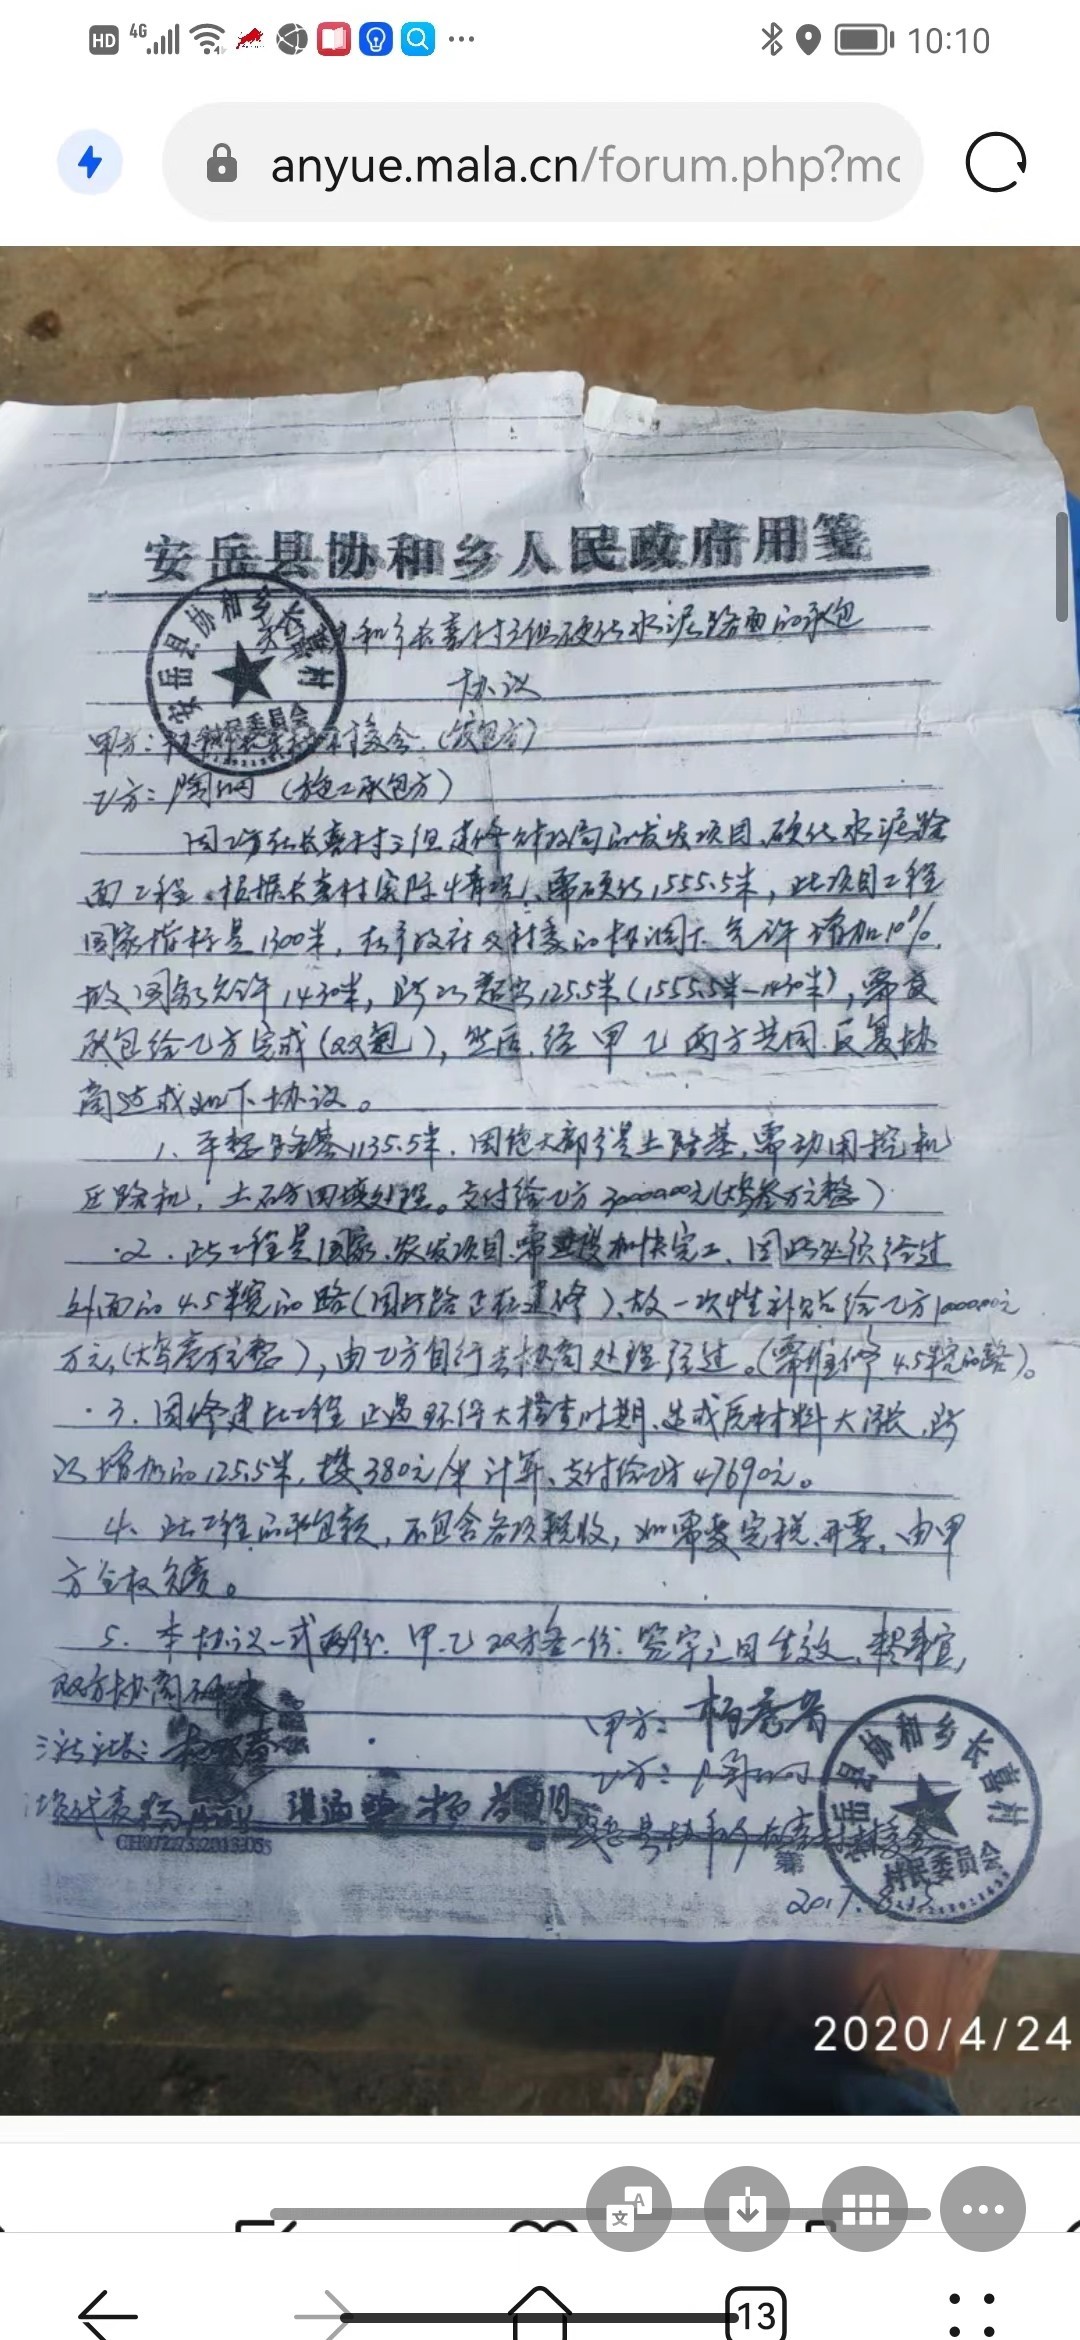 HD 4G 10:10
anyue.mala.cn/forum.php?mo
安岳县协和乡人民政府用笺
和乡长喜村三组硬化水泥路面的承包
协议
甲方：
乙方：陶 （施工承包方）
因乙方在长喜村三组建修财政局的农发项目、硬化水泥路
面工程。根据长喜村实际情况、需硬化1555.5米，此项目工程
国家指标是1300米，在乡政府及村委的协调下允许增加10%，
故国家允许1430米，所以超出125.5米（1555.5米-1430米），需
承包给乙方完成（双 ），然后，经甲乙两方共同反复协
商达成如下协议。
1、平整路基1135.5米，因 大部分是土路基，需动用挖机
压路机，土石方回填处理。支付给乙方30000.00元（大写叁万元整）
2、此工程是国家农发项目、需 加快完工、因此必须经过
外面的4.5米宽的路（因此路正在建修），故一次性补贴给乙方10000.00元
万元，（大写壹万元整），由乙方自行去协商处理经过。（需维修4.5米宽的路）。
3、因修建此工程正遇环保大检查时期、造成原材料大涨，所
以增加的125.5米，按380元/米计算、支付给乙方47690元。
4、此工程的承包额，不包含各项税收，如需要完税、开票，由甲
方全权负责。
5、本协议一式两份，甲、乙双方各一份。签字之日生效、 事宜，
双方协商
三社社长：
甲方：杨
乙方：陶
代表
安岳县协和乡长喜村
第
2017.8
安岳县协和乡长喜村
村民委员会
2020/4/24
13